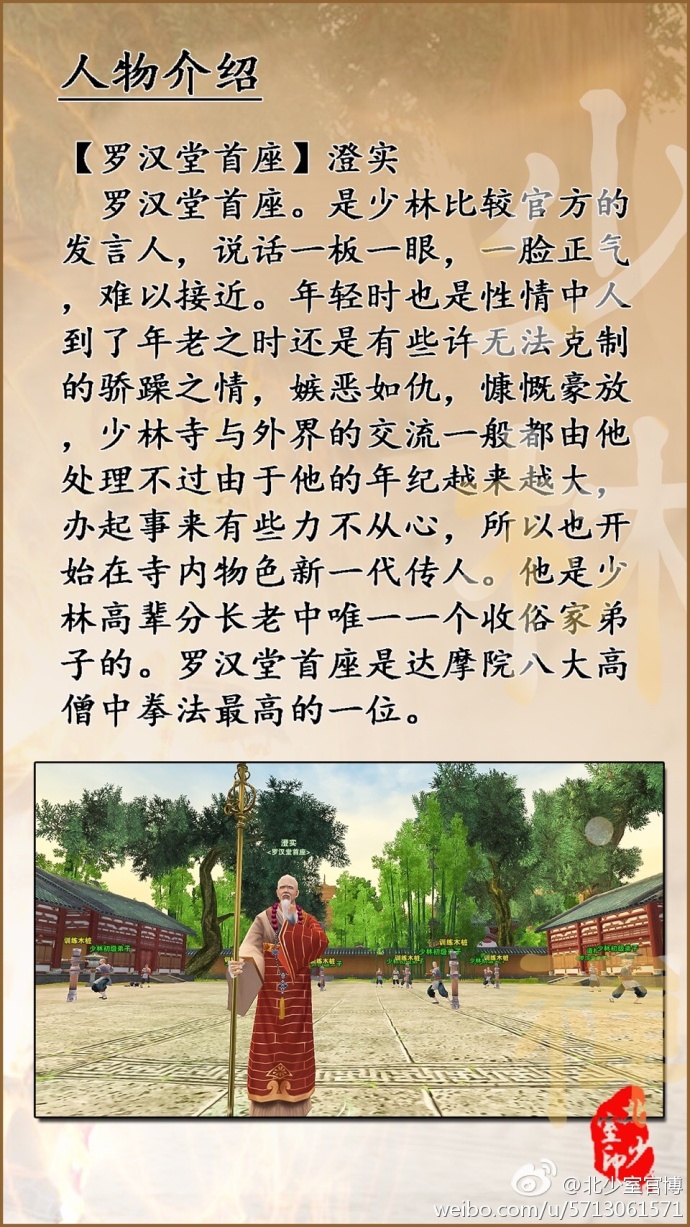 人物介绍
【罗汉堂首座】澄实
罗汉堂首座。是少林比较官方的
发言人，说话一板一眼，一脸正气
，难以接近。年轻时也是性情中人
到了年老之时还是有些许无法克制
的骄躁之情，嫉恶如仇，慷慨豪放
，少林寺与外界的交流一般都由他
处理不过由于他的年纪越来越大，
办起事来有些力不从心，所以也开
始在寺内物色新一代传人。他是少
林高辈分长老中唯一一个收俗家弟
子的。罗汉堂首座是达摩院八大高
僧中拳法最高的一位。
少林
澄实
<罗汉堂首座>
训练木桩
少林初级弟子
训练木桩
训练木桩
少林初级弟子
训练木桩
少林初级弟子
北少室印
@北少室官博
weibo.com/u/5713061571